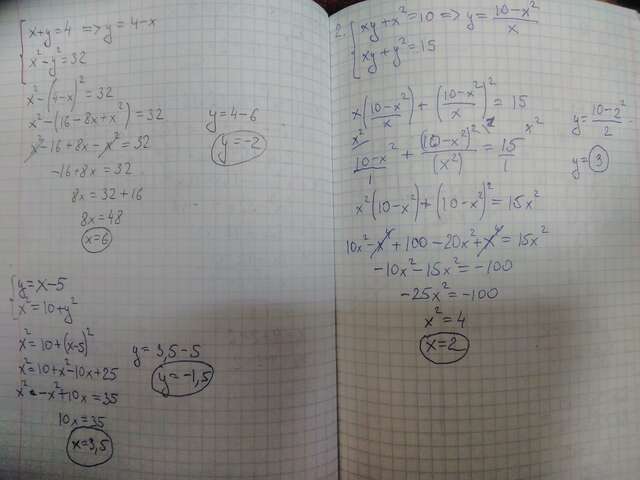 x+y=4 => y=4-x
x²-y²=32
x²-(4-x)²=32
x²-(16-8x+x²)=32
x²-16+8x-x²=32
-16+8x=32
8x=32+16
8x=48
x=6
y=4-6
y=-2
y=x-5
x²=10+y²
x²=10+(x-5)²
x²=10+x²-10x+25
x²-x²+10x=35
10x=35
x=3,5
y=3,5-5
y=-1,5
2. xy+x²=10 => y=(10-x²)/x
xy+y²=15
x((10-x²)/x)+((10-x²)/x)²=15
x² (10-x²)/1+(10-x²)²/(x²)=15/1 x²
x²(10-x²)+(10-x²)²=15x²
10x²-x⁴+100-20x²+x⁴=15x²
-10x²-15x²=-100
-25x²=-100
x²=4
x=2
y=(10-2²)/2
y=3